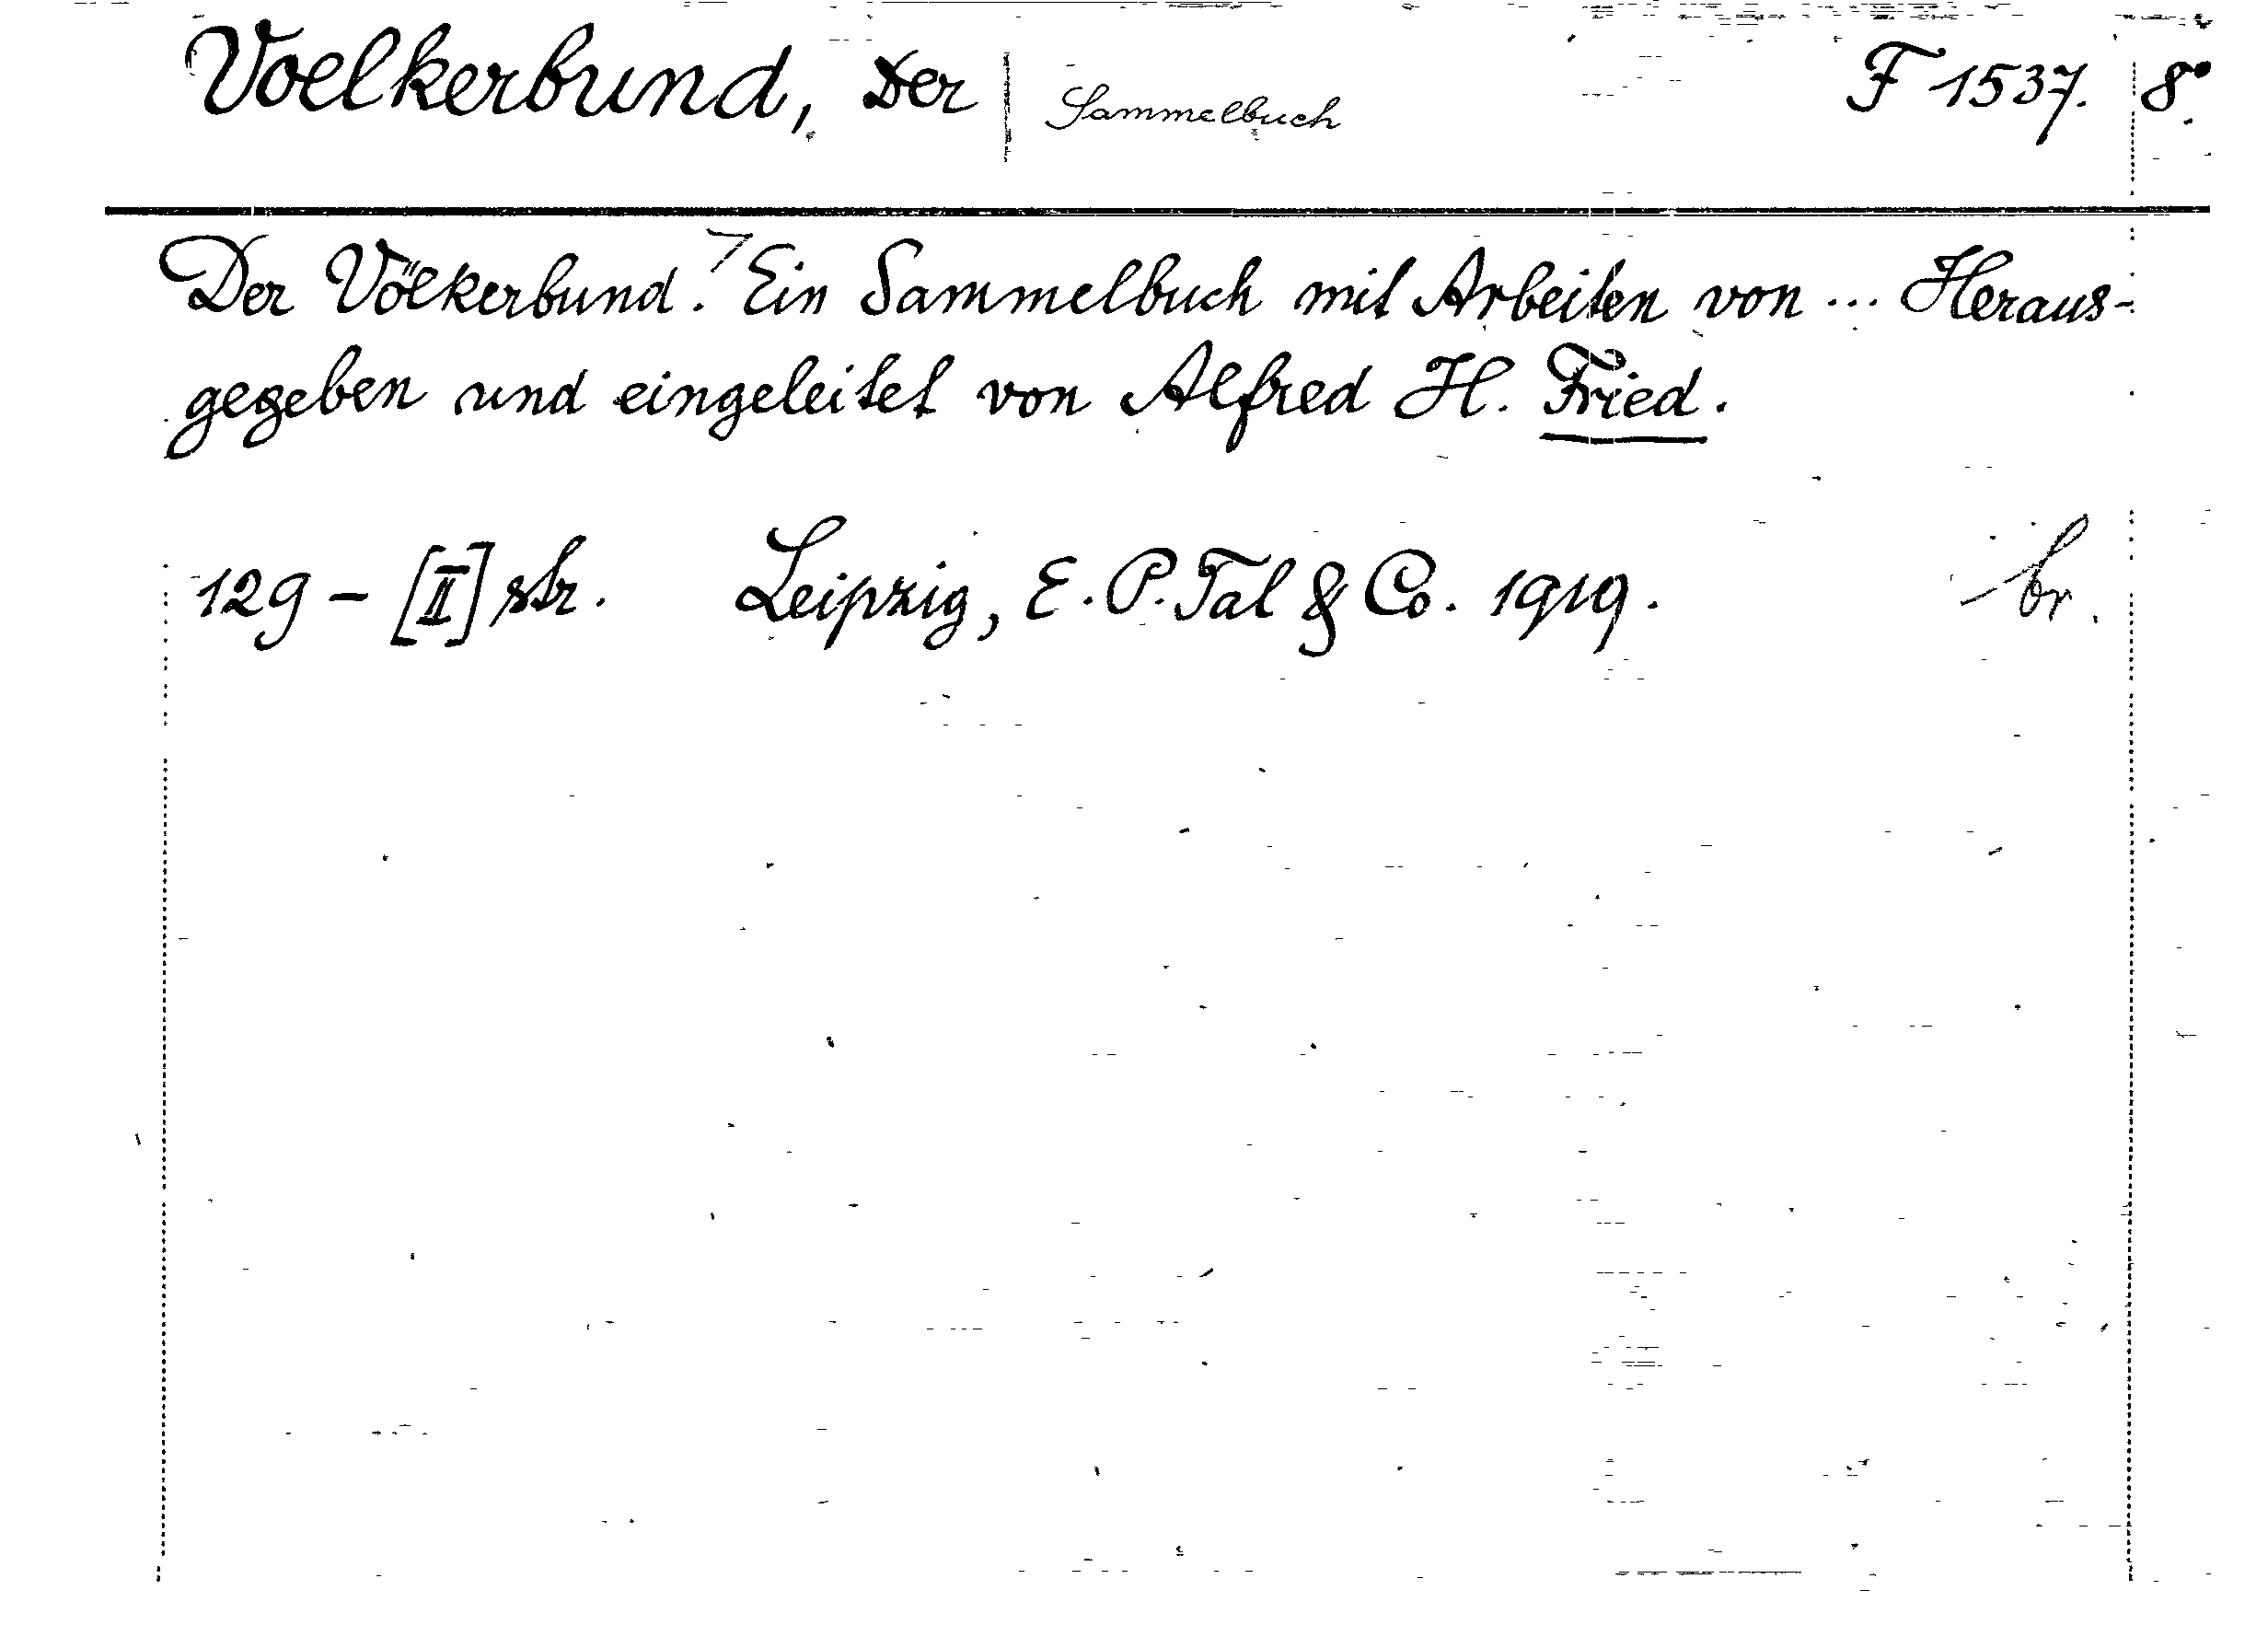 Voelkerbund, Der | Sammelbuch F 1537. 8°
Der Völkerbund. Ein Sammelbuch mit Arbeiten von ... Heraus-
gegeben und eingeleitet von Alfred H. Fried.
129 - [II] str. Leipzig, E. P. Tal & Co. 1919. br.